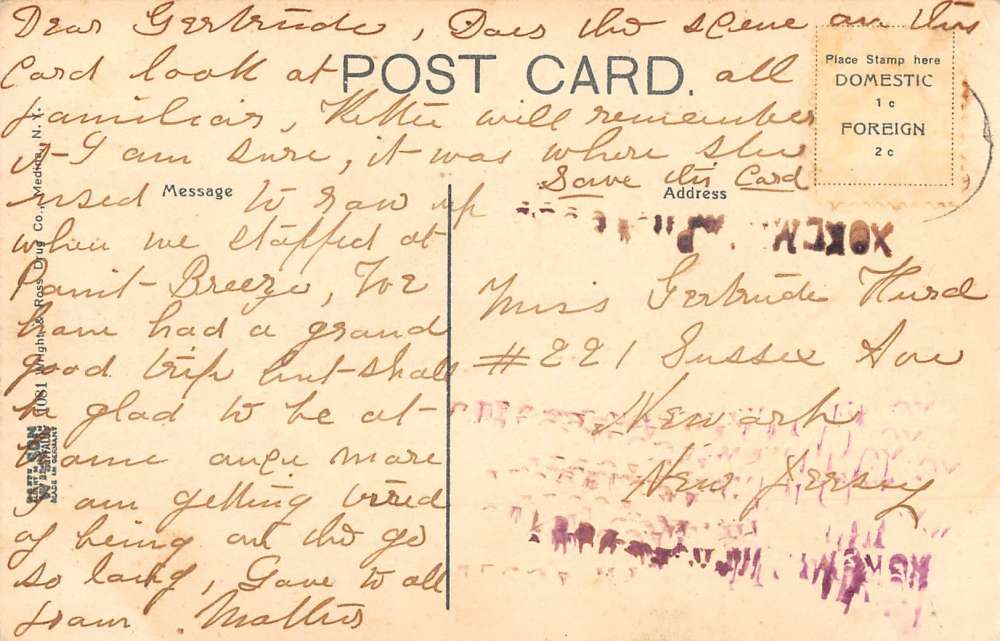 Dear Gertrude, Does the scene on this
Card look at all
familiar, Kittie will remember
it I am sure, it was where she
used to row up
when we stopped at
Point Breeze, We
have had a grand
good trip but shall
be glad to be at
home once more
I am getting tired
of being on the go
so long, Love to all
from Mother
Save this Card
POST CARD.
Message
Address
Place Stamp here
DOMESTIC
1 c
FOREIGN
2 c
Miss Gertrude Hurd
#221 Sussex Ave
Newark
New Jersey
1081 Wright & Ross Drug Co., Medina, N. Y.
MADE IN GERMANY